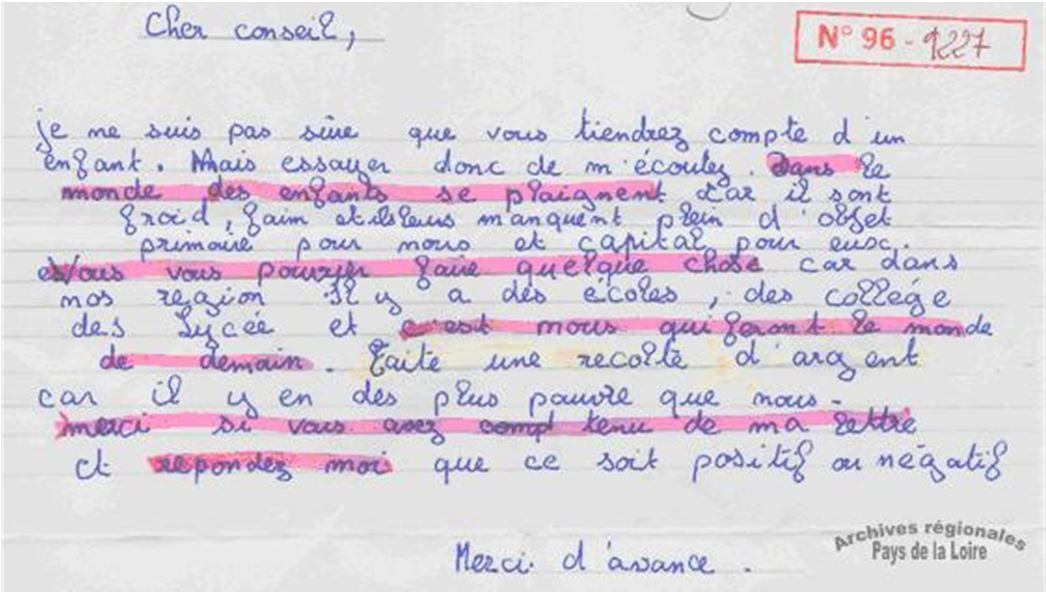 Cher conseil,
N° 96 - 1227
je ne suis pas sûre que vous tiendrez compte d'un
enfant. Mais essayer donc de m'écoutez. Dans le
monde des enfants se plaignent car il sont
froid, faim et ils leurs manquent plein d'objet
primaire pour nous et capital pour eux.
Vous vous pourrier faire quelque chose car dans
nos region il y a des écoles, des collège
des Lycée et c'est nous qui feront le monde
de demain. Faite une recolte d'argent
car il y en des plus pauvre que nous.
merci si vous avez compt tenu de ma lettre
et repondez moi que ce soit positif ou négatif
Merci d'avance.
Archives régionales
Pays de la Loire